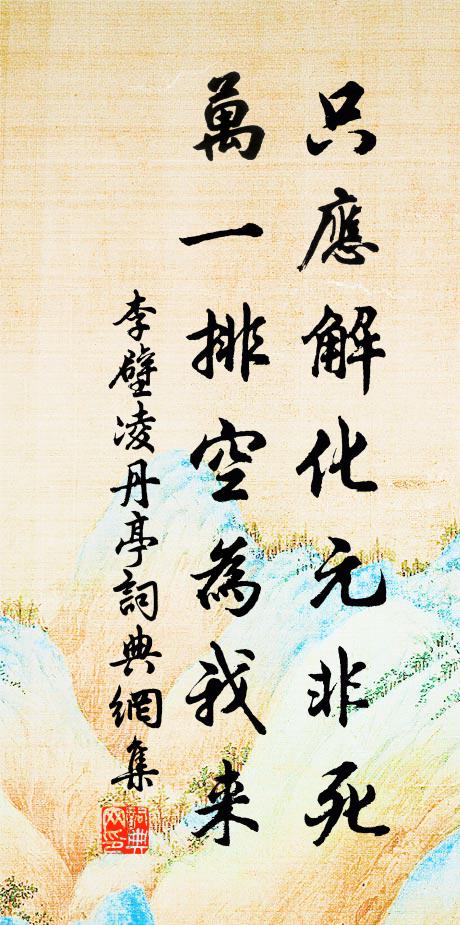 只應解化元非死
萬一排空為我来
李壁凌丹亭詞典網集
詞典網印